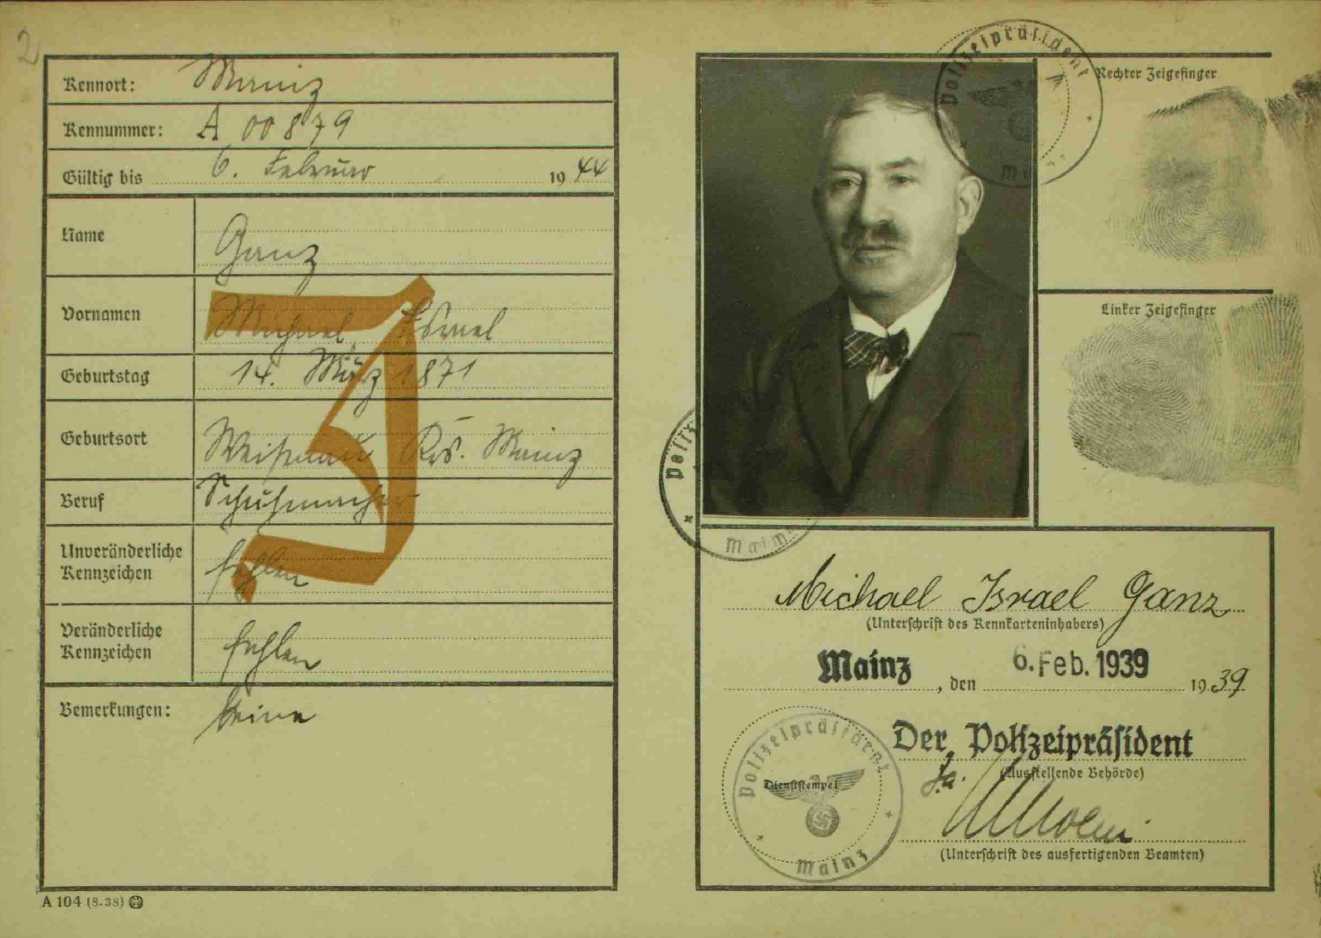 2
Kennort: Mainz
Kennummer: A 00879
Gültig bis 6. Februar 1944
Name Ganz
Vornamen Michael Israel
Geburtstag 14. März 1871
Geburtsort Weisenau Krs. Mainz
Beruf Schuhmacher
Unveränderliche Kennzeichen fehlen
Veränderliche Kennzeichen fehlen
Bemerkungen: keine
J
A 104 (8.38)
Polizeipräsident
Rechter Zeigefinger
Linker Zeigefinger
Mainz
Michael Israel Ganz
(Unterschrift des Kennkarteninhabers)
Mainz, den 6. Feb. 1939 1939
Der Polizeipräsident
(Ausstellende Behörde)
Polizeipräsident
Dienststempel
Mainz
(Unterschrift des ausfertigenden Beamten)